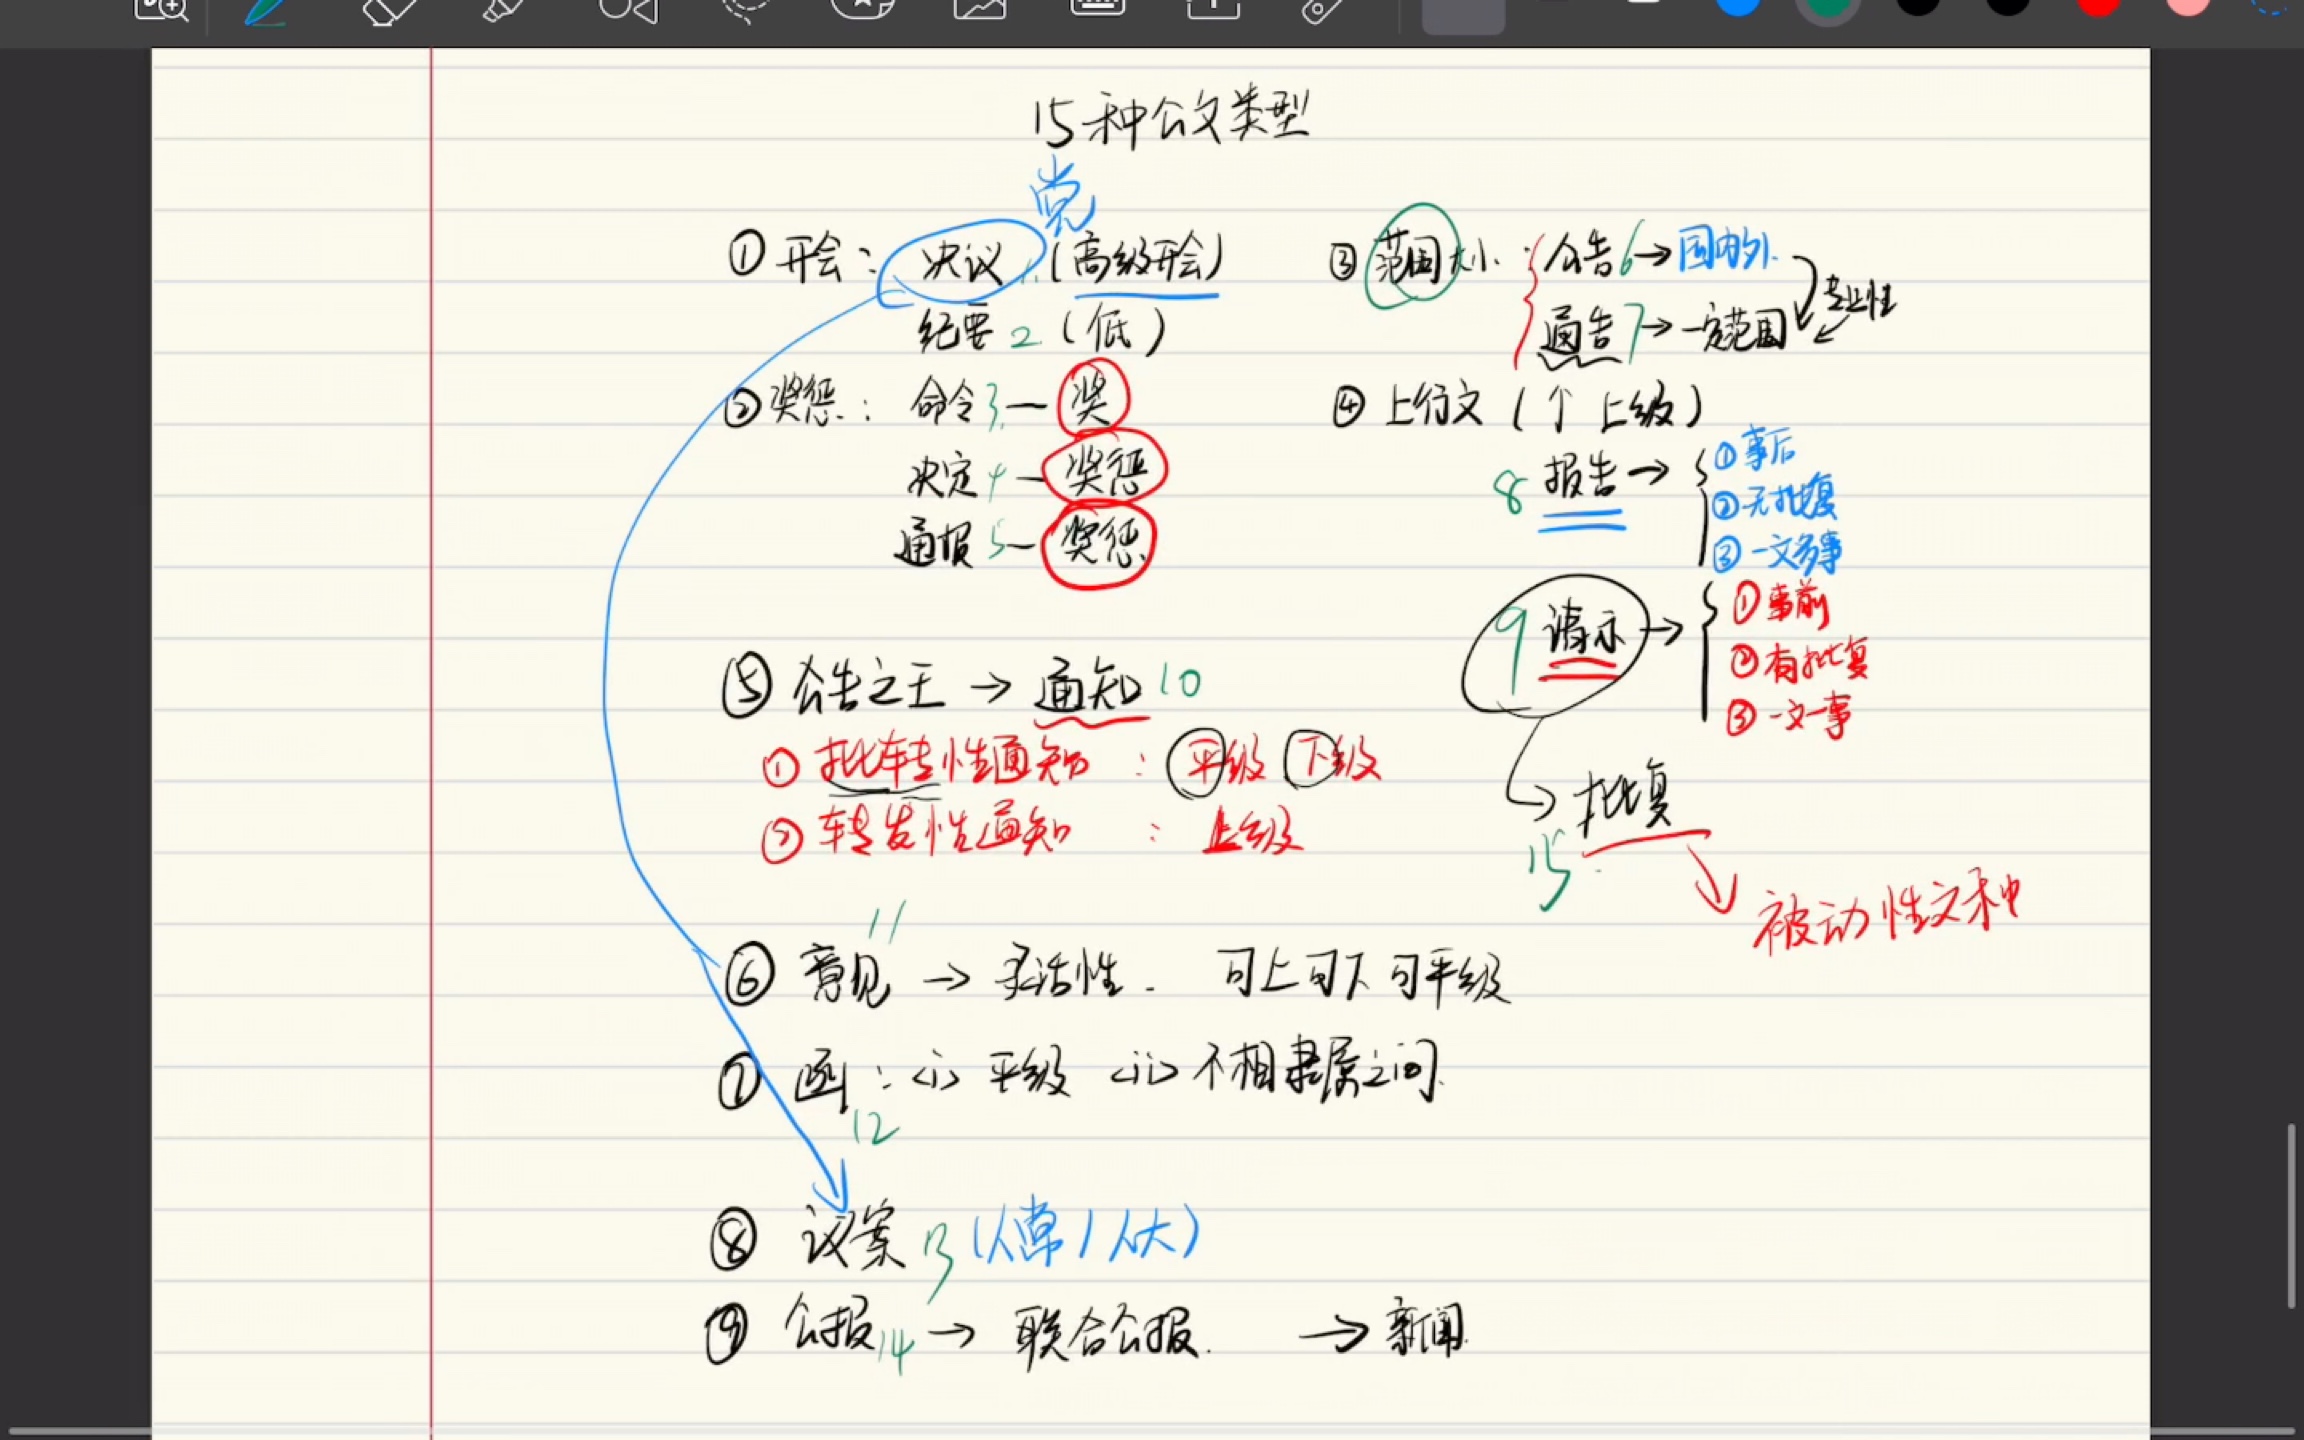 15种公文类型
党
① 开会： 决议 1. （高级开会）
纪要 2. （低）
② 奖惩： 命令 3. — 奖
决定 4 — 奖惩
通报 5 — 奖惩
③ 范围大小： 公告 6 → 国内外
通告 7 → 一定范围
专业性
④ 上行文（个 上级）
8 报告 →
① 事后
② 无批复
③ 一文多事
9 请示 →
① 事前
② 有批复
③ 一文一事
→ 批复
15
被动性文种
⑤ 公告之王 → 通知 10
① 批转性通知 ： 平级 下级
② 转发性通知 ： 上级
11
⑥ 意见 → 灵活性. 可上可下可平级
⑦ 函：<i> 平级 <ii> 不相隶属之间.
12
⑧ 议案 13 （人常/人大）
⑨ 公报 14 → 联合公报. → 新闻.